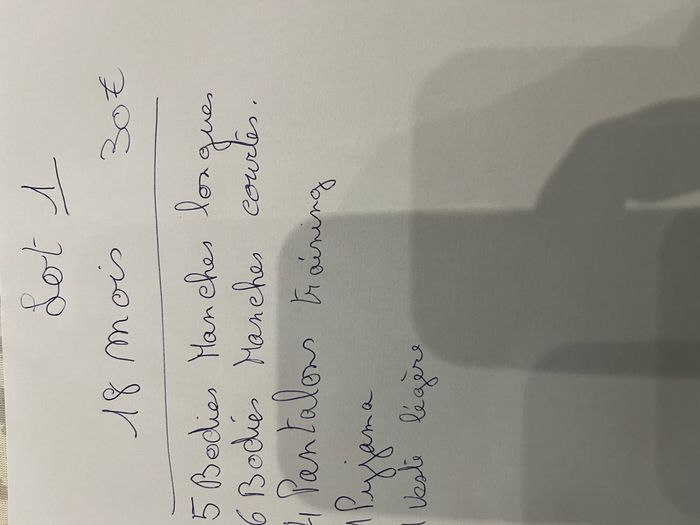 Lot 1
18 mois 30€
5 Bodies Manches longues
6 Bodies Manches courtes.
4 Pantalons training
1 Pyjama
1 Veste légère